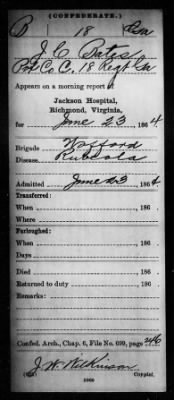 (CONFEDERATE.)
B 18 Ga
J. C. Bates
Pvt Co C, 18 Regt Ga
Appears on a morning report of
Jackson Hospital,
Richmond, Virginia,
for June 23, 1864
Brigade Wofford
Disease Rubeola
Admitted June 23, 1864
Transferred:
When , 186
Where
Furloughed:
When , 186
Days
Died , 186
Returned to duty , 186
Remarks:
Confed. Arch., Chap. 6, File No. 699, page 246
J. W. Wilkinson
Copyist.